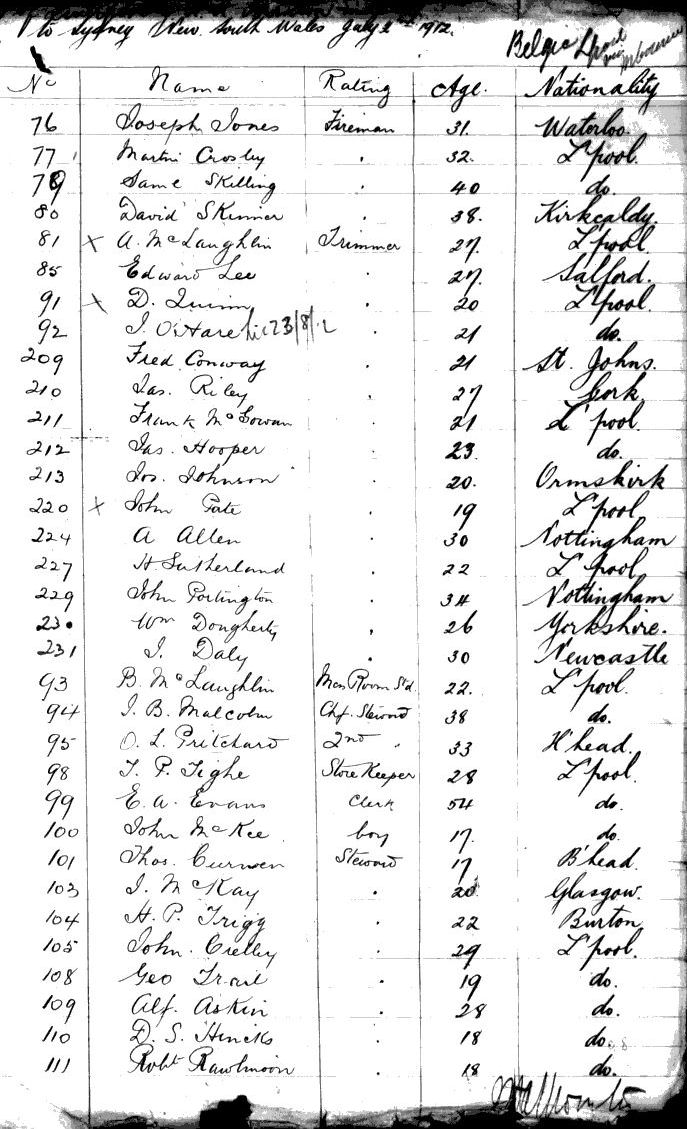 to Sydney New South Wales July 2nd 1912.
Belgic L'pool via Melbourne
No Name Rating Age. Nationality
76 Joseph Jones Fireman 31. Waterloo.
77 Martin Crosby . 32. L'pool.
79 Saml Skilling . 40 do.
80 David Skinner . 38. Kirkcaldy.
81 x A. McLaughlin Trimmer 27. L'pool.
85 Edward Lee . 27. Salford.
91 x D. Quinn . 20 L'pool.
92 J. O'Hare 23/8/12 . 21 do.
209 Fred Conway . 21 St. Johns.
210 Jas. Riley . 27 Cork.
211 Frank McGowan . 21 L'pool.
212 Jas. Hooper . 23 do.
213 Jos. Johnson . 20. Ormskirk
220 x John Pate . 19 L'pool
224 A Allen . 30 Nottingham
227 H. Sutherland . 22 L'pool
229 John Portington . 34 Nottingham
230 Wm Dougherty . 26 Yorkshire.
231 J. Daly . 30 Newcastle
93 B. McLaughlin Mess Room Std. 22. L'pool.
94 J. B. Malcolm Chf. Steward 38 do.
95 O. L. Pritchard 2nd " 33 H'head.
98 T. P. Tighe Store Keeper 28 L'pool.
99 E. A. Evans Clerk 54 do.
100 John McKee boy 17. do.
101 Thos. Curwen Steward 17 B'head.
103 J. McKay . 20 Glasgow.
104 H. P. Trigg . 22 Burton
105 John Crelley . 29 L'pool.
108 Geo Trail . 19 do.
109 Alf. Askin . 28 do.
110 D. S. Hincks . 18 do.
111 Robt Rawlinson . 18 do.